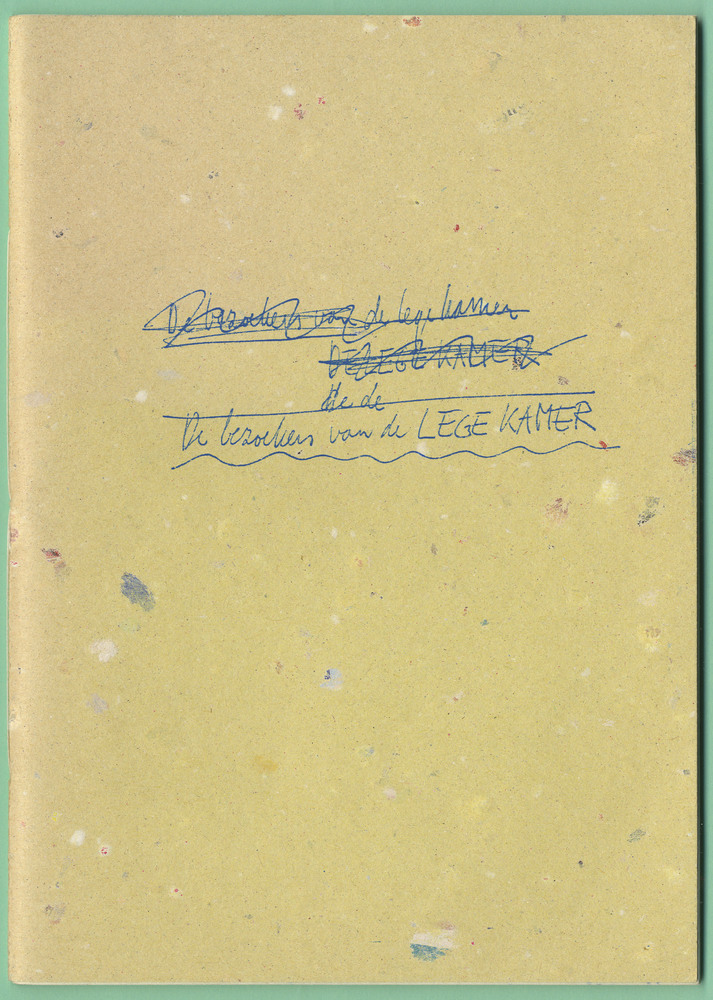 De bezoekers van de lege kamer
DE LEGE KAMER
de
De bezoekers van de LEGE KAMER